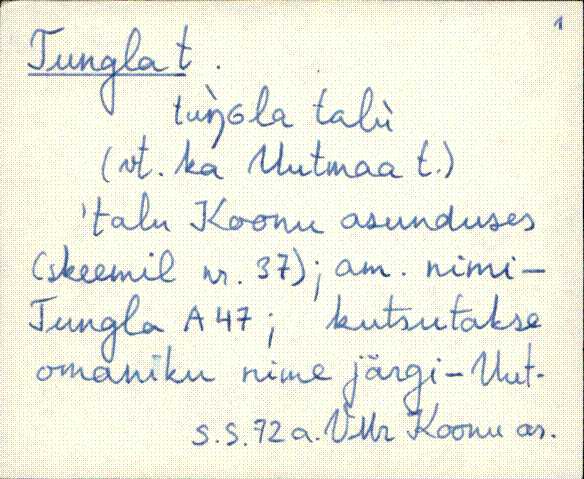 1
Tungla t.
tuŋ̀ɢla talù
(vt. ka Uutmaa t.)
'talu Koonu asunduses
(skeemil nr. 37); am. nimi-
Tungla A 47; kutsutakse
omaniku nime järgi - Uut.
S.S. 72 a. VMr Koonu as.